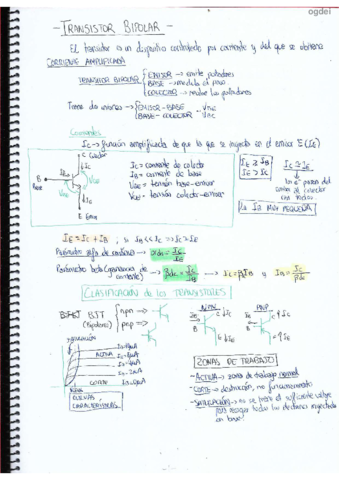 ogdei
- TRANSISTOR BIPOLAR -
El transistor es un dispositivo controlado por corriente y del que se obtiene
CORRIENTE AMPLIFICADA
TRANSISTOR BIPOLAR
EMISOR → emite portadores
BASE → modula el paso
COLECTOR → recibe los portadores
Tiene dos uniones
EMISOR-BASE
BASE-COLECTOR
Corrientes
Ic → función amplificada de que la que se inyecta en el emisor E (IE)
C Colector
Ic
B
Base
E Emisor
Ic = corriente de colector
IB = corriente de base
VBE = tensión base-emisor
VCB = tensión colector-base
IE ≫ IB
IE > IC
IC ≅ IE
los e⁻ pasan del
emisor al colector
casi todos
La IB MUY PEQUEÑA
IE = IC + IB , si IB << IC => IC ≅ IE
Parámetro alfa de continua → αdc = IC/IE
Parámetro beta (ganancia de corriente) → βdc = IC/IB → IC = βIB y IB = IC/βdc
CLASIFICACIÓN de los TRANSISTORES
BJT
(Bipolares)
npn →
pnp →
NPN
PNP
B
IC
IE
SATURACIÓN
ACTIVA
CORTE
IB=0μA
CURVAS
CARACTERÍSTICAS
ZONAS DE TRABAJO
- ACTIVA → zona de trabajo normal
- CORTE → destrucción, no funcionamiento
- SATURACIÓN → no se tiene el suficiente voltaje
para recoger todos los electrones inyectados
en base!